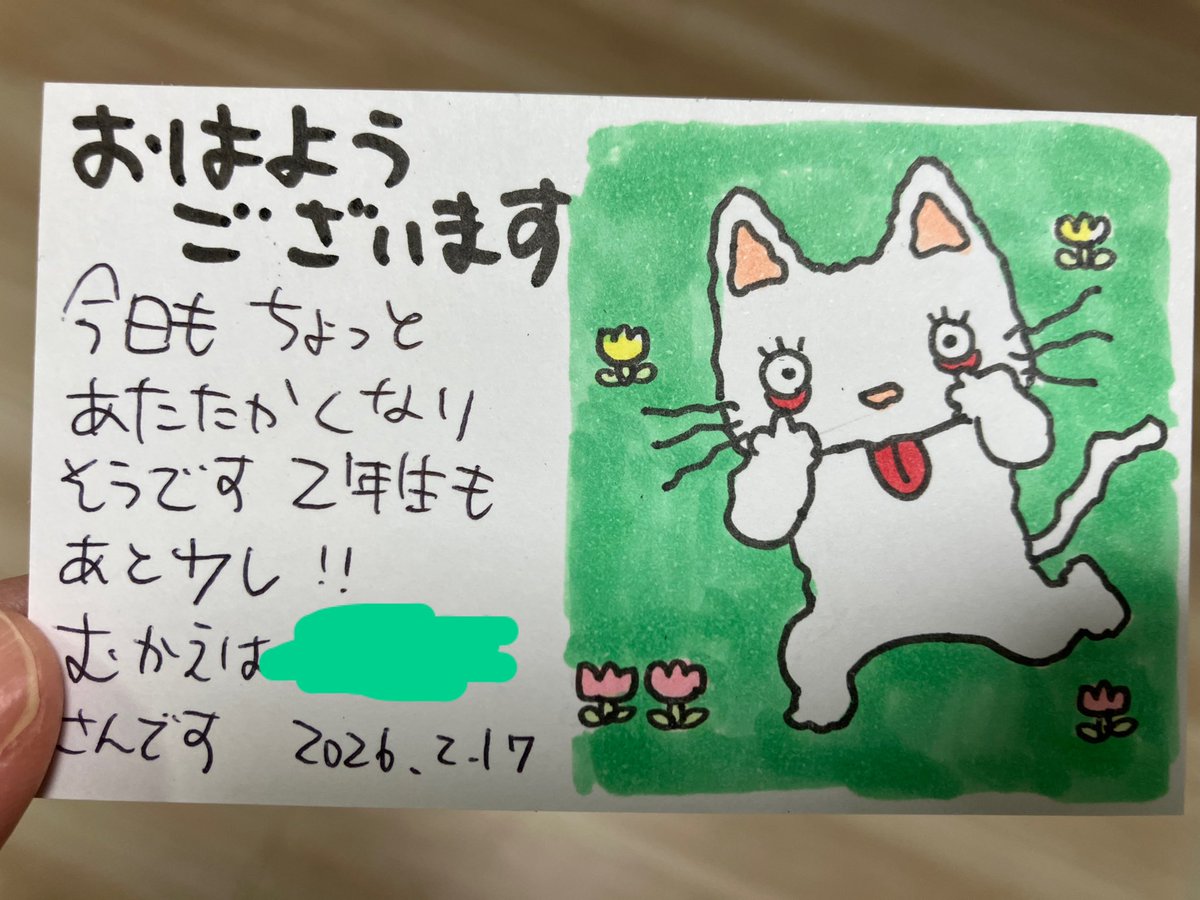 おはよう
ございます
今日も ちょっと
あたたかくなり
そうです 2年生も
あと少し!!
むかえは
さんです 2026.2.17